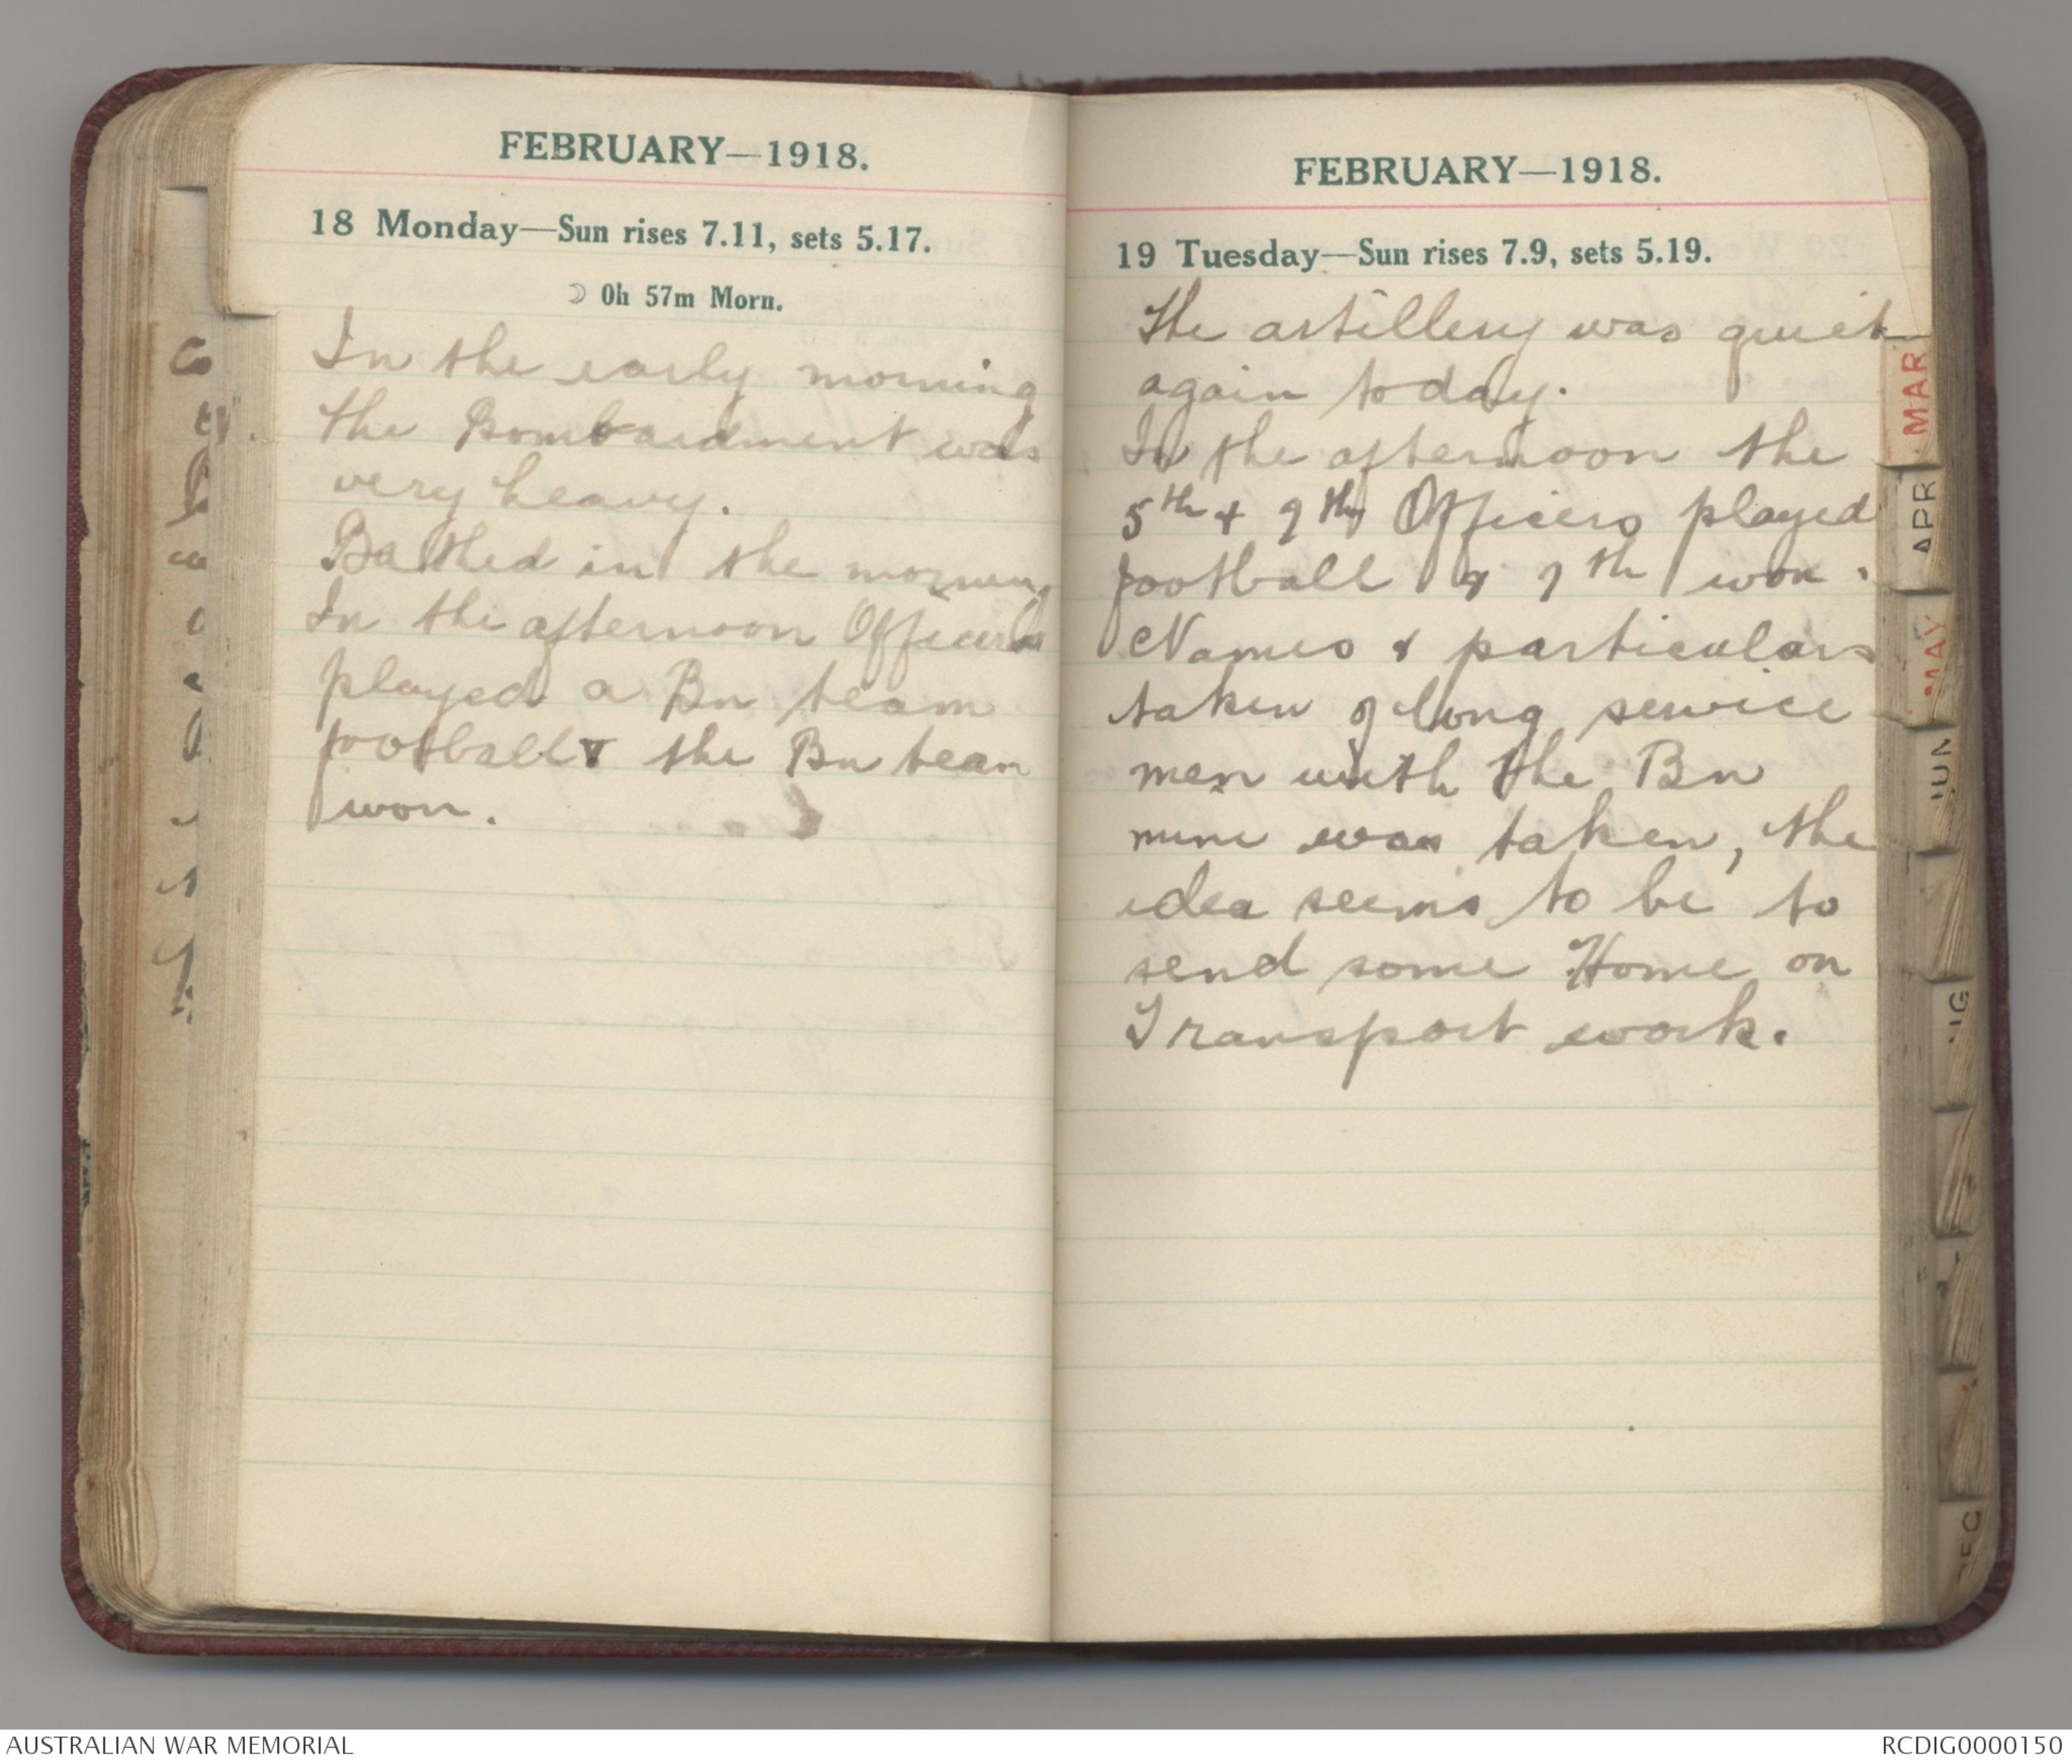 FEBRUARY—1918.
18 Monday—Sun rises 7.11, sets 5.17.
☽ 0h 57m Morn.
In the early morning
the Bombardment was
very heavy.
Bathed in the morning
In the afternoon Officers
played a Bn team
football & the Bn team
won.
FEBRUARY—1918.
19 Tuesday—Sun rises 7.9, sets 5.19.
The artillery was quiet
again today.
In the afternoon the
5th & 7th Officers played
football & 7th won.
Names & particulars
taken of long service
men with the Bn
mine was taken, the
idea seems to be to
send some Home on
Transport work.
MAR
APR
MAY
JUN
AUSTRALIAN WAR MEMORIAL
RCDIG0000150